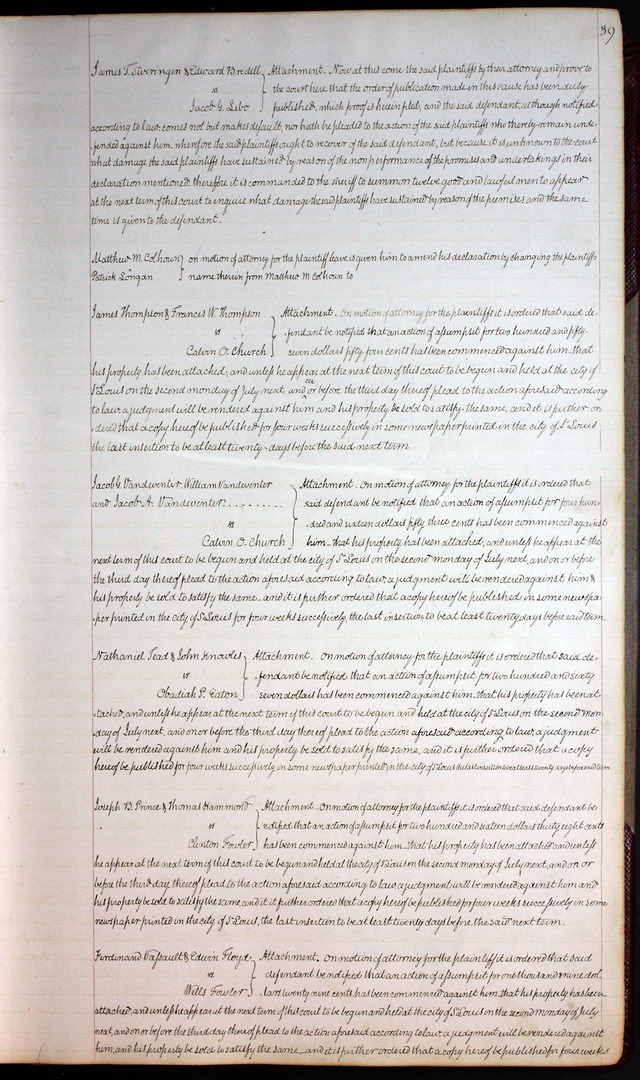 39
James T. Sweringen & Edward Bredell } Attachment. Now at this come the said plaintiffs by their attorney and prove to
vs the court here that the order of publication made in this cause has been duly
Jacob G. Lebo published, which proof is herein filed, and the said defendant, although notified
according to law comes not but makes default, nor hath he pleaded to the action of the said plaintiffs who thereby remain unde-
fended against him. wherefore the said plaintiffs ought to recover of the said defendant, but because it is unknown to the court
what damage the said plaintiffs have sustained by reason of the non performance of the promises and undertakings in their
declaration mentioned, therefore it is commanded to the sheriff to summon twelve good and lawful men to appear
at the next term of this court to enquire what damage the said plaintiffs have sustained by reason of the premises and the same
time is given to the defendant.
Matthew M. Colhoun } on motion of attorney for the plaintiff leave is given him to amend his declaration by changing the plaintiffs
Patrick Longan name therein from Matthew M Colhoun to
James Thompson & Francis W. Thompson } Attachment. On motion of attorney for the plaintiffs it is ordered that said de-
vs fendant be notified that an action of assumpsit for two hundred and fifty-
Calvin O. Church seven dollars fifty four cents has been commenced against him. that
his property has been attached, and unless he appear at the next term of this court to be begun and held at the city of
St Louis on the second monday of July next, and on or before the third day thereof plead to the action aforesaid according
to law, a judgment will be rendered against him and his property be sold to satisfy the same, and it is further or-
dered that a copy hereof be published for four weeks successively in some newspaper printed in the city of St Louis
the last insertion to be at least twenty days before the said next term.
Jacob G Vandwenter William Vandwenter } Attachment. On motion of attorney for the plaintiffs it is ordered that
and Jacob A. Vandwenter . . . . . . . . . said defendant be notified that an action of assumpsit for four hun-
vs dred and sixteen dollars fifty three cents has been commenced against
Calvin O. Church him. that his property has been attached, and unless he appear at the
next term of this court to be begun and held at the city of St Louis on the second monday of July next, and on or before
the third day thereof plead to the action aforesaid according to law, a judgment will be rendered against him &
his property be sold to satisfy the same. and it is further ordered that a copy hereof be published in some newspa-
per printed in the city of St Louis for four weeks successively, the last insertion to be at least twenty days before said term.
Nathaniel Tead & John Knowles } Attachment. On motion of attorney for the plaintiffs it is ordered that said de-
vs fendant be notified that an action of assumpsit for two hundred and sixty
Obadiah P. Eaton seven dollars has been commenced against him. that his property has been at-
tached, and unless he appear at the next term of this court to be begun and held at the city of St Louis on the second mon-
day of July next, and on or before the third day thereof plead to the action aforesaid according to law, a judgment
will be rendered against him and his property be sold to satisfy the same, and it is further ordered that a copy
hereof be published for four weeks successively in some newspaper printed in the city of St Louis the last insertion to be at least twenty days before said term
Joseph B. Prince & Thomas Hammond } Attachment. On motion of attorney for the plaintiffs it is ordered that said defendant be
vs notified that an action of assumpsit for two hundred and sixteen dollars thirty eight cents
Clinton Fowler has been commenced against him. that his property has been attached and unless
he appear at the next term of this court to be begun and held at the city of St Louis on the second monday of July next, and on or
before the third day thereof plead to the action aforesaid according to law a judgment will be rendered against him and
his property be sold to satisfy the same, and it it further ordered that a copy hereof be published for four weeks successively in some
newspaper printed in the city of St Louis, the last insertion to be at least twenty days before the said next term.
Ferdinand Vassault & Edwin Floyd } Attachment. On motion of attorney for the plaintiff it is ordered that said
vs defendant be notified that an action of assumpsit for one thousand & nine dol
Wills Fowler lars twenty nine cents has been commenced against him, that his property has been
attached, and unless he appear at the next term of this court to be begun and held at the city of St Louis on the second monday of July
next, and on or before the third day thereof plead to the action aforesaid according to law, a judgment will be rendered against
him, and his property be sold to satisfy the same. and it is further ordered that a copy hereof be published for four weeks